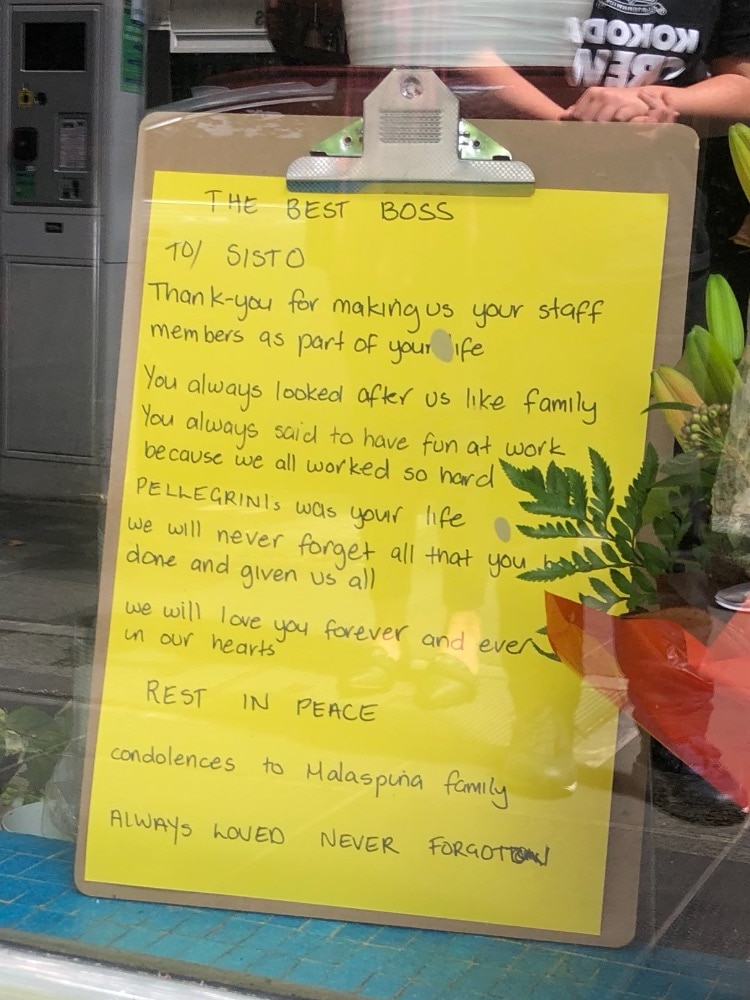 KOKODA
CREW
THE BEST BOSS
TO/ SISTO
Thank-you for making us your staff
members as part of your life
You always looked after us like family
You always said to have fun at work
because we all worked so hard
PELLEGRINIs was your life
we will never forget all that you
done and given us all
we will love you forever and ever
in our hearts
REST IN PEACE
condolences to Malaspina family
ALWAYS LOVED NEVER FORGOTTON